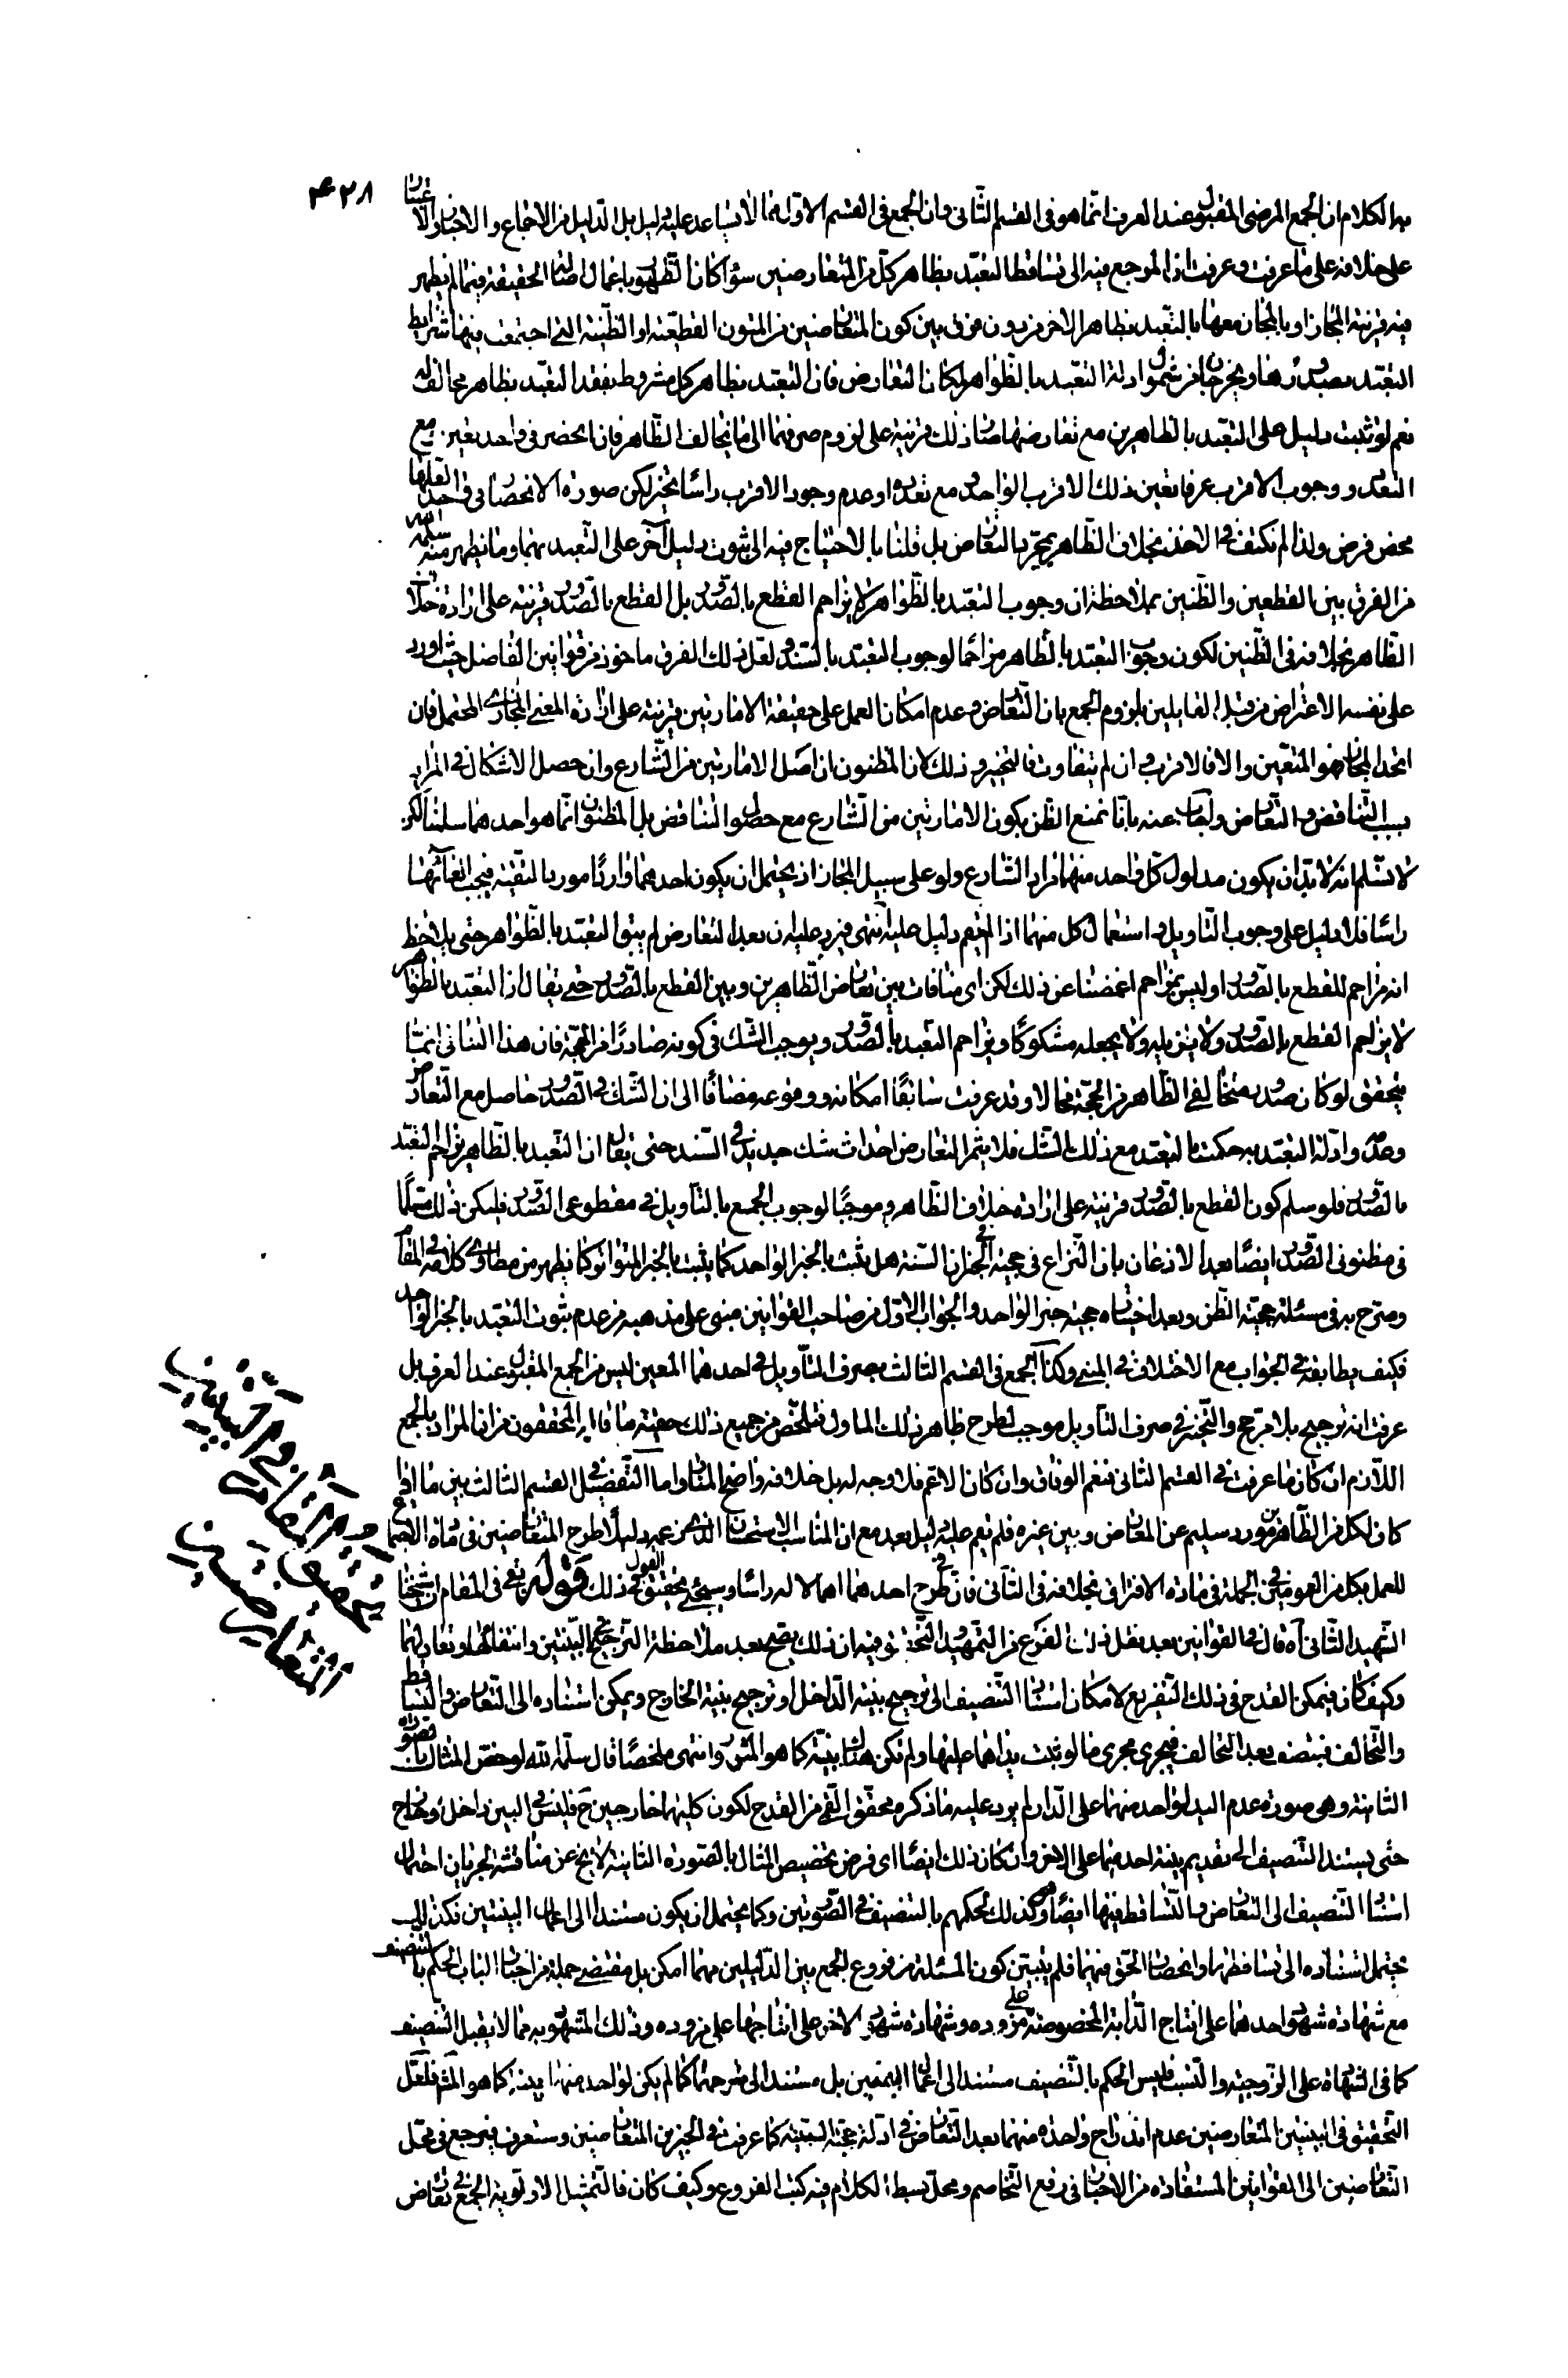 ۴۲۸
به الكلام ان الجمع المرضى المقبول عند العرف انما هو فى القسم الثانى وان الجمع فى القسم الاول مما لا يساعد عليه دليل بل الدليل من الاجماع والاخبار والاعتبار
على خلافه على ما عرفت وعرفت ان المرجع فيه الى تساقط التعبد بظاهر كل من المتعارضين سواء كان الظهور باعمال اصالة الحقيقة فيما لم يظهر
فيه قرينة المجاز او بالمجاز معها بالتعبد بظاهر الاخر من دون فرق بين كون المتعارضين من المتون القطعية او الظنية التى اجتمعت فيها شرايط
التعبد بصدورها وبخرجان من شمول ادلة التعبد بالظواهر لمكان التعارض فان التعبد بظاهر كل مشروط بفقد التعبد بظاهر مخالف له
نعم لو ثبت دليل على التعبد بالظاهرين مع تعارضهما صار ذلك قرينة على لزوم صرفهما الى ما يخالف الظاهر فان انحصر فى واحد تعين ومع
التعدد ووجوب الاقرب عرفا تعين ذلك الاقرب الواحد ومع تعدده او عدم وجود الاقرب راسا يتخير لكن صورة الانحصار فى واحد لعلها
محض فرض ولذا لم نكتف فى الاخذ بخلاف الظاهر بمجرد التعارض بل قلنا بالاحتياج فيه الى ثبوت دليل آخر على التعبد بهما وما يظهر منه سلمه الله
من الفرق بين القطعيين والظنيين بملاحظة ان وجوب التعبد بالظواهر لا يزاحم القطع بالصدور بل القطع بالصدور قرينة على ارادة خلاف
الظاهر بخلافه فى الظنيين لكون وجوب التعبد بالظاهر مزاحما لوجوب التعبد بالسند ولعل ذلك الفرق ماخوذ من قوانين الفاضل حيث اورد
على نفسه الاعتراض من قبل القايلين بلزوم الجمع بان التعارض وعدم امكان العمل على حقيقة الامارتين قرينة على ارادة المعنى المجازى المحتمل فان
اتحد المجاز فهو المتعين والا فالاقرب وان لم يتفاوت فالتخيير وذلك لان المظنون ان اصل الامارتين من الشارع وان حصل الاشكال فى المراد
بسبب التناقض والتعارض واجاب عنه بانا نمنع الظن بكون الامارتين من الشارع مع حصول التناقض بل المظنون انما هو احدهما سلمنا لكن
لا نسلم انه لا بد ان يكون مدلول كل واحد منهما مراد الشارع ولو على سبيل المجاز اذ يحتمل ان يكون احدهما واردا مورد التقية فيجب الغائها
راسا فلا دليل على وجوب التاويل واستعمال كل منهما اذا لم يقم دليل عليه انتهى فيرد عليه ان بعد التعارض لم يبق التعبد بالظواهر حتى يلاحظ
انه مزاحم للقطع بالصدور او ليس بمزاحم اغمضنا عن ذلك لكن اى منافات بين تعارض الظاهرين وبين القطع بالصدور حتى يقال ان التعبد بالظواهر
لا يزاحم القطع بالصدور ولا يزيله ولا يجعله مشكوكا ويزاحم التعبد بالصدور ويوجب الشك فى كونه صادرا من الحجة فان هذا التنافى انما
يتحقق لو كان صدور متخالفى الظاهر من الحجة محالا وقد عرفت سابقا امكانه ووقوعه مضافا الى ان الشك فى الصدور حاصل مع التعارض
وعدمه وادلة التعبد به حكمت بالتعبد مع ذلك الشك فلا يثمر التعارض احداث شك جديد فى السند حتى يقال ان التعبد بالظاهر يزاحم التعبد
بالصدور فلو سلم كون القطع بالصدور قرينة على ارادة خلاف الظاهر وموجبا لوجوب الجمع بالتاويل فى مقطوعى الصدور فليكن ذلك مسلما
فى مظنونى الصدور ايضا بعد الاذعان بان النزاع فى حجية الخبر فى ان السنة هل يثبت بالخبر الواحد كما يثبت بالخبر المتواتر كما يظهر من مطاوى كلامه فى المقام
وصرح به فى مسئلة حجية الظن وبعد اختياره حجية خبر الواحد والجواب الاول من صاحب القوانين مبنى على مذهبه من عدم ثبوت التعبد بالخبر الواحد
فكيف يطابقه فى الجواب مع الاختلاف فى المبنى وكذا الجمع فى القسم الثالث بصرف التاويل فى احدهما المعين ليس من الجمع المقبول عند العرف بل
عرفت انه ترجيح بلا مرجح والتخيير فى صرف التاويل موجب لطرح ظاهر ذلك الماول فتلخص من جميع ذلك حقية ما قال به المحققون من ان المراد بالجمع
اللازم ان كان ما عرفت فى القسم الثانى فنعم الوفاق وان كان الاعم فلا وجه له بل خلافه واضح المنار واما التفصيل فى القسم الثالث بين ما اذا
كان لكل من الظاهرين مورد سليم عن المعارض وبين غيره فلم نقم عليه دليل بعد مع ان المناسب لاستحسان الذى زعمه دليلا طرح المتعارضين فى مادة الاجتماع
للعمل بكل من العمومين فى الجملة فى مادة الافتراق بخلافه فى الثانى فان فى طرح احدهما اهمالا له راسا وسيجئ تحقيق القول فى ذلك قوله بقى فى المقام ان شيخنا
الشهيد الثانى آه قال فى القوانين بعد نقل ذلك الفرع عن التمهيد وفيه ان ذلك يصح بعد ملاحظة الترجيح فى البينتين وانتفائها وتعادلهما
وكيف كان فيمكن القدح فى ذلك التفريع لامكان استناد التنصيف الى ترجيح بينة الداخل او ترجيح بينة الخارج ويمكن استناده الى التعارض والتساقط
والتحالف فينصف بعد التحالف فيجرى مجرى ما لو ثبت يداهما عليها ولم تكن هناك بينة كما هو المشهور انتهى ملخصا قال سلمه الله لو خص المثال بالصورة
الثانية وهى صورة عدم اليد لواحد منهما على الدار لم يرد عليه ما ذكره المحقق القمى من القدح لكون كليهما خارجين ح فليس فى البين داخل وخارج
حتى يستند التنصيف الى تقديم بينة احدهما على الاخر وان كان ذلك ايضا اى فرض تخصيص المثال بالصورة الثانية لا يخ عن مناقشة لجريان احتمال
استناد التنصيف الى التعارض والتساقط فيها ايضا وكذلك لحكمهم بالتنصيف فى الصورتين وكما يحتمل ان يكون مستندا الى اعمال البينتين فكذلك
يحتمل استناده الى تساقطهما وانحصار الحق فيهما فلم يثبتن كون المسئلة من فروع الجمع بين الدليلين مهما امكن بل مقتضى جملة من اخبار الباب الحكم بالتنصيف
مع شهادة شهود احدهما على انتاج الدابة المخصوصة على مزوده وشهادة شهود الاخر على انتاجها على مزوده وذلك المشهود به مما لا يقبل التنصيف
كما فى الشهادة على الزوجية والنسب فليس الحكم بالتنصيف مستندا الى اعمال البينتين بل مستند الى طرحهما كما لم يكن لواحد منهما بينة كما هو المشهور فلعل
التحقيق فى البينتين المتعارضتين عدم اندراج واحدة منهما بعد التعارض فى ادلة حجية البينة كما عرفت فى الخبرين المتعارضين وستعرف فيرجع فى محل
التعارضين الى القوانين المستفادة من الاخبار فى رفع التخاصم ومحل بسط الكلام فيه كتب الفروع وكيف كان فالتمثيل لاولوية الجمع فى تعارض
المتعارضين